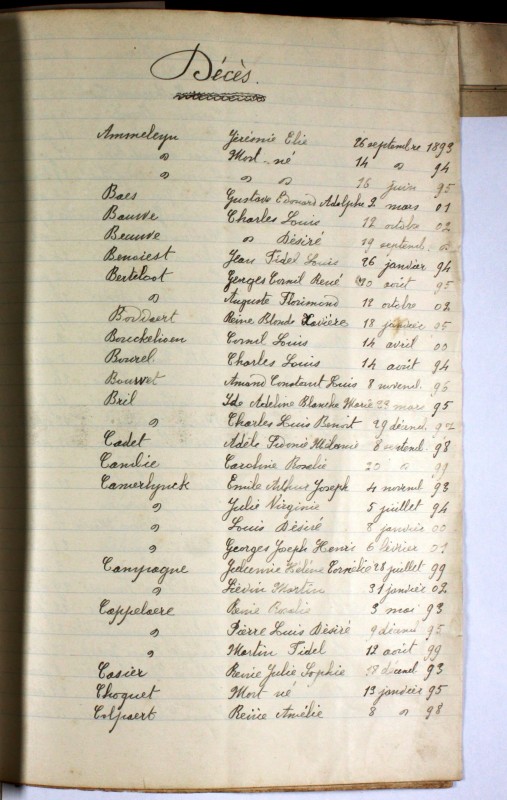 Décès.
Ammeleyn Jérémie Elie 26 septembre 1893
" Mort-né 14 " 94
" " " 16 juin 95
Baes Gustave Edouard Adolphe 2 mars 01
Bauwe Charles Louis 12 octobre 02
Beauve " Désiré 19 septemb.
Benoiest Jean Fidel Louis 26 janvier 94
Berteloot Georges Cornil René 10 août 95
" Auguste Florimond 12 octobre 02
Boddaert Reine Blonde Xavière 18 janvier 95
Bouckelioen Cornil Louis 14 avril 00
Bourel Charles Louis 14 août 94
Bourvet Amand Constant Louis 8 novemb. 96
Bril Ide Adeline Blanche Marie 23 mars 95
" Charles Louis Benoit 29 décemb.
Cadet Adèle Sidonie Mélanie 8 septemb. 98
Camélie Caroline Rosalie 20 " 99
Camerlynck Emile Arthur Joseph 4 novemb. 93
" Julie Virginie 5 juillet 94
" Louis Désiré 8 janvier 00
" Georges Joseph Henri 6 février 01
Campagne Hélène Cornélie 28 juillet 99
" Liévin Martin 31 janvier 02
Cappelaere Reine Rosalie 3 mai 93
" Pierre Luis Désiré 9 décemb. 95
" Martin Fidel 12 août 99
Casier Reine Julie Sophie 17 décemb. 93
Choquet Mort né 13 janvier 95
Colpaert Reine Amélie 8 " 98